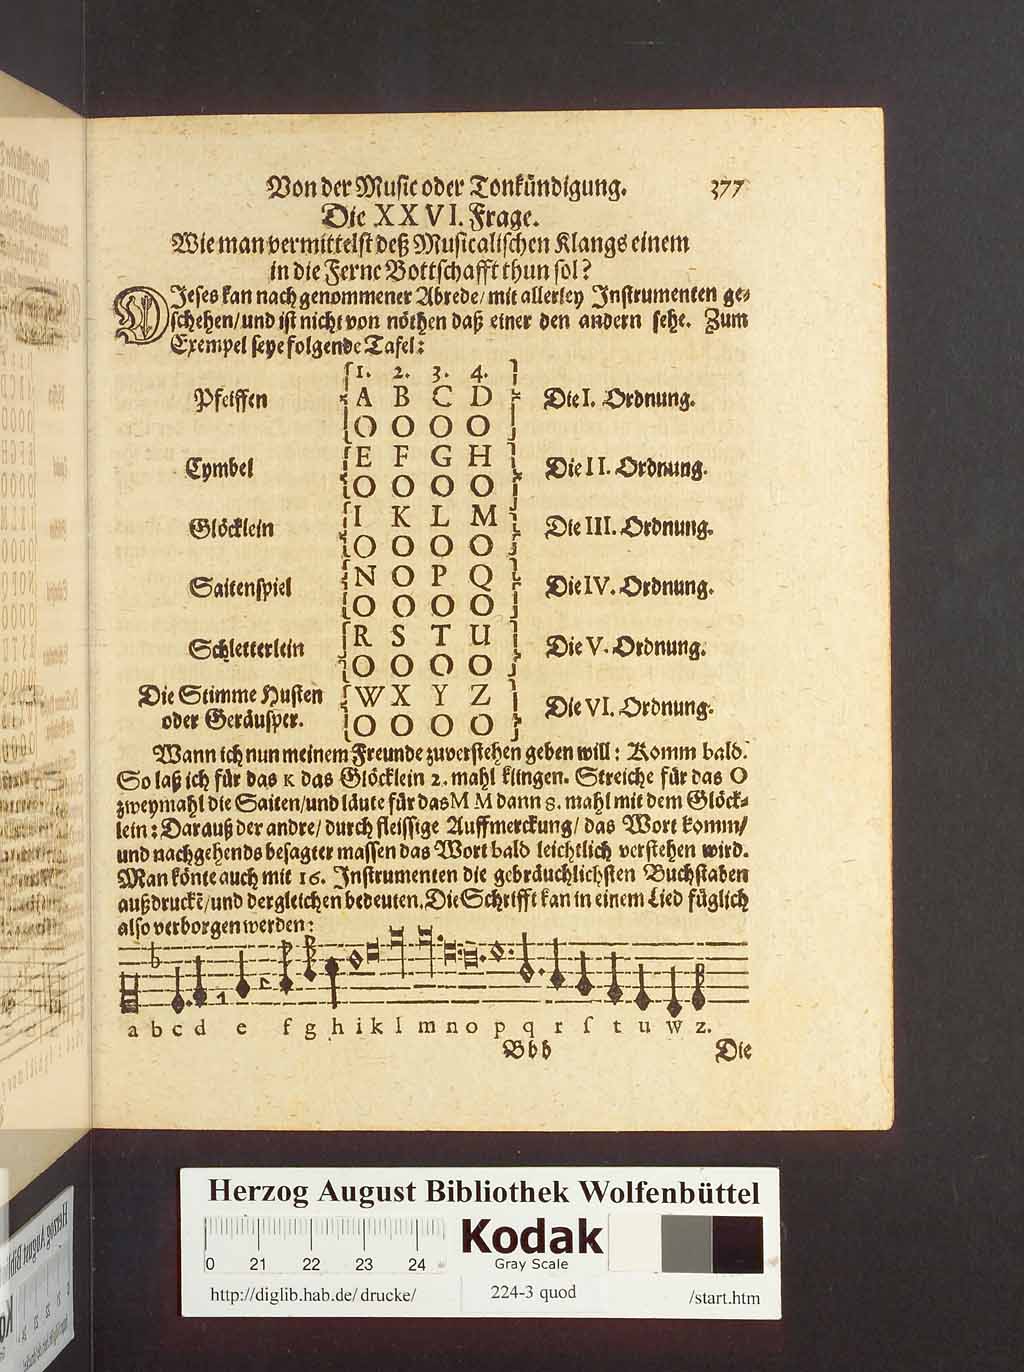 Von der Music oder Tonkündigung. 377
Die XXVI. Frage.
Wie man vermittelst deß Musicalischen Klangs einem
in die Ferne Bottschafft thun sol?
DIeses kan nach genommener Abrede/ mit allerley Instrumenten ge-
schehen/ und ist nicht von nöthen daß einer den andern sehe. Zum
Exempel seye folgende Tafel:
1. 2. 3. 4.
Pfeiffen A B C D Die I. Ordnung.
O O O O
Cymbel E F G H Die II. Ordnung.
O O O O
Glöcklein I K L M Die III. Ordnung.
O O O O
Saitenspiel N O P Q Die IV. Ordnung.
O O O O
Schletterlein R S T U Die V. Ordnung.
O O O O
Die Stimme Husten W X Y Z Die VI. Ordnung.
oder Geräusper. O O O O
Wann ich nun meinem Freunde zuverstehen geben will: Komm bald.
So laß ich für das K das Glöcklein 2. mahl klingen. Streiche für das O
zweymahl die Saiten/ und läute für das M M dann 8. mahl mit dem Glöck-
lein: Darauß der andre/ durch fleissige Auffmerckung/ das Wort komm/
und nachgehends besagter massen das Wort bald leichtlich verstehen wird.
Man könte auch mit 16. Instrumenten die gebräuchlichsten Buchstaben
außdruckẽ/ und dergleichen bedeuten. Die Schrifft kan in einem Lied füglich
also verborgen werden:
a b c d e f g h i k l m n o p q r ſ t u w z.
Bbb Die
Herzog August Bibliothek Wolfenbüttel
0 21 22 23 24
Kodak
Gray Scale
http://diglib.hab.de/drucke/ 224-3 quod /start.htm